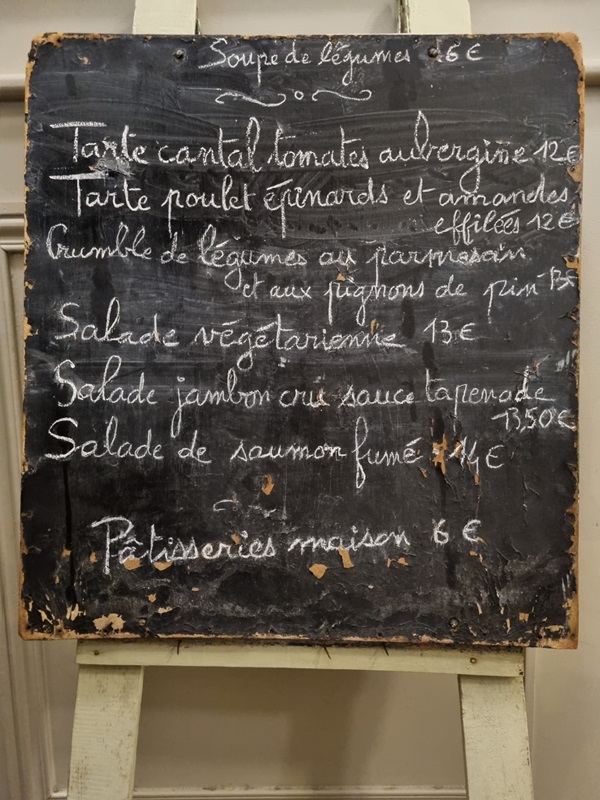 Soupe de légumes 6 €
Tarte cantal tomates aubergine 12 €
Tarte poulet épinards et amandes
effilées 12 €
Crumble de légumes au parmesan
et aux pignons de pin 13 €
Salade végétarienne 13 €
Salade jambon cru sauce tapenade
13,50 €
Salade de saumon fumé 14 €
Pâtisseries maison 6 €